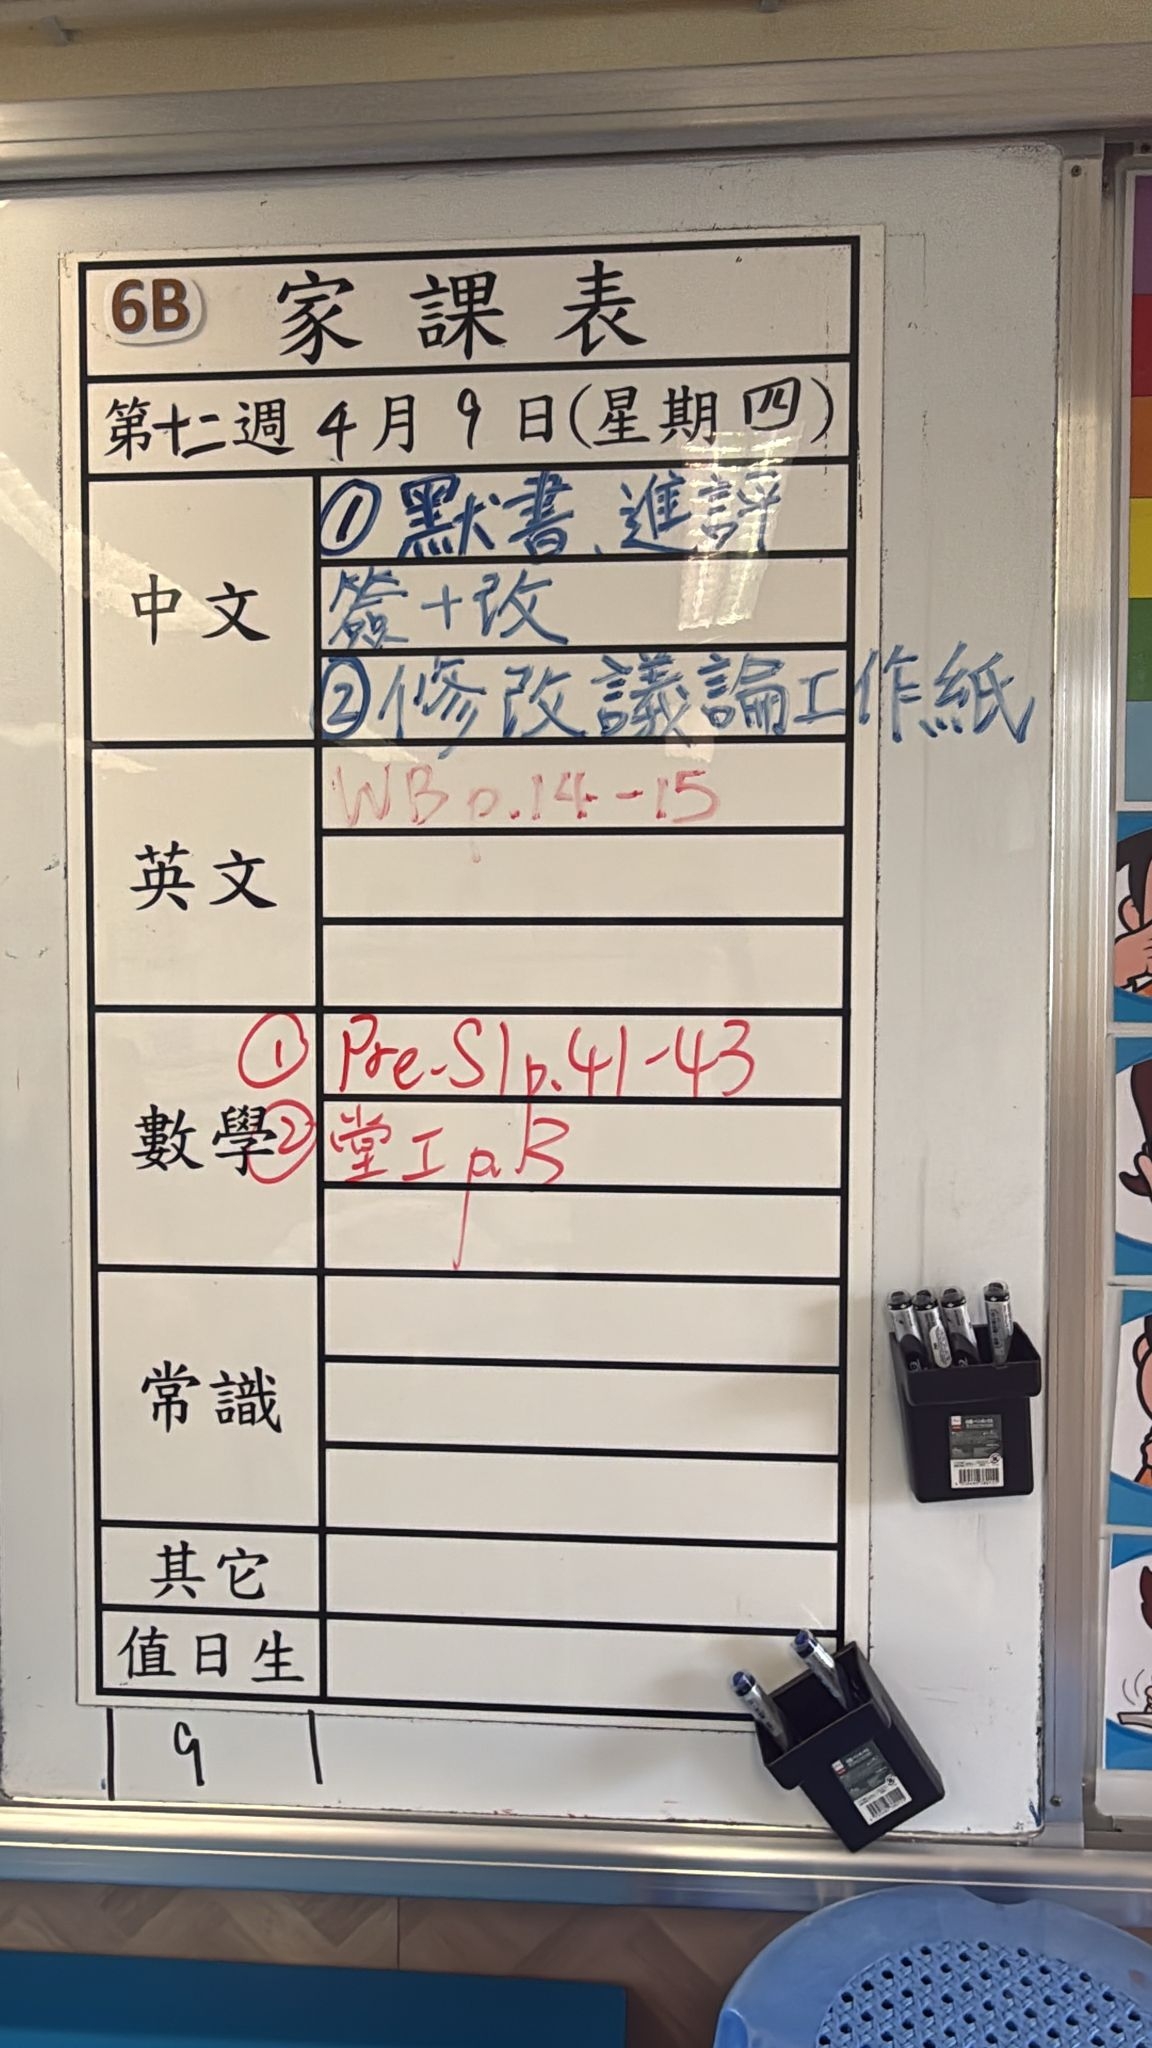 6B 家課表
第十二週 4月9日(星期四)
中文
①默書、進評
簽+改
②修改議論工作紙
英文
WB p.14-15
數學
① Pre-S1 p.41-43
② 堂工 p.13
常識
其它
值日生
9